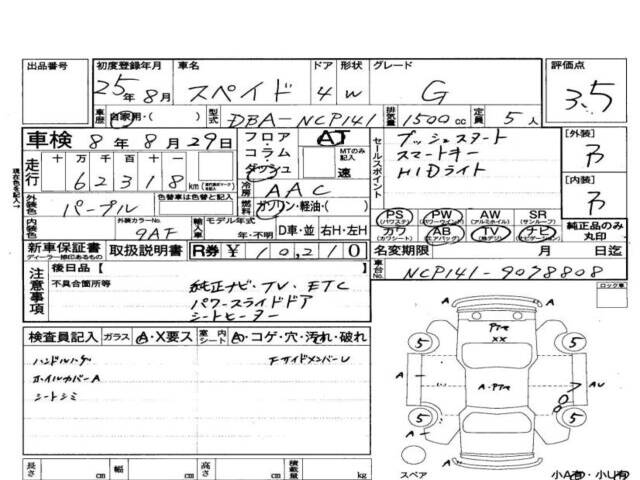 出品番号 初度登録年月 車名 ドア 形状 グレード 評価点
25年8月 スペイド 4 W G 3.5
車歴 自家用・( ) 型式 DBA-NCP141 排気量 1500cc 定員 5人
車検 8年8月29日 フロア・コラム・ダッシュ AT MTのみ記入 速
セールスポイント プッシュスタート
スマートキー
HIDライト
[外装] ア
[内装] ア
走行 十万 千百十一
62318km
冷房 AAC
外装色 パープル 色替車は色替と記入 燃料 ガソリン・軽油・( )
現在色を記入→
内装色 外装カラーNo. 9AF 輸入車 モデル年式 年・不明 D車・並 右H・左H
PS (パワステ) PW (パワーウインド) AW (アルミホイル) SR (サンルーフ)
カワ (カワシート) AB (エアバッグ) TV (純デジ) ナビ (純ナビゲーション)
純正品のみ丸印
新車保証書 ディーラー捺印あるもの 取扱説明書 R券 ¥10,210
名変期限 月 日迄
車台No. NCP141-9078808
注意事項 後日品【
不具合箇所等 純正ナビ・TV・ETC
パワースライドドア
シートヒーター
ロック車
検査員記入 ガラス A・X要ス 室内シート A・コゲ・穴・汚れ・破れ
ハンドルハゲ FサイドメンバーU
ホイルカバーA
シートシミ
PTキ
XX
5 5
A A
A A・PTキ AU
5 5
A
スペア
小A有・小U有
長さ cm 幅 cm 高さ cm 積載量 kg